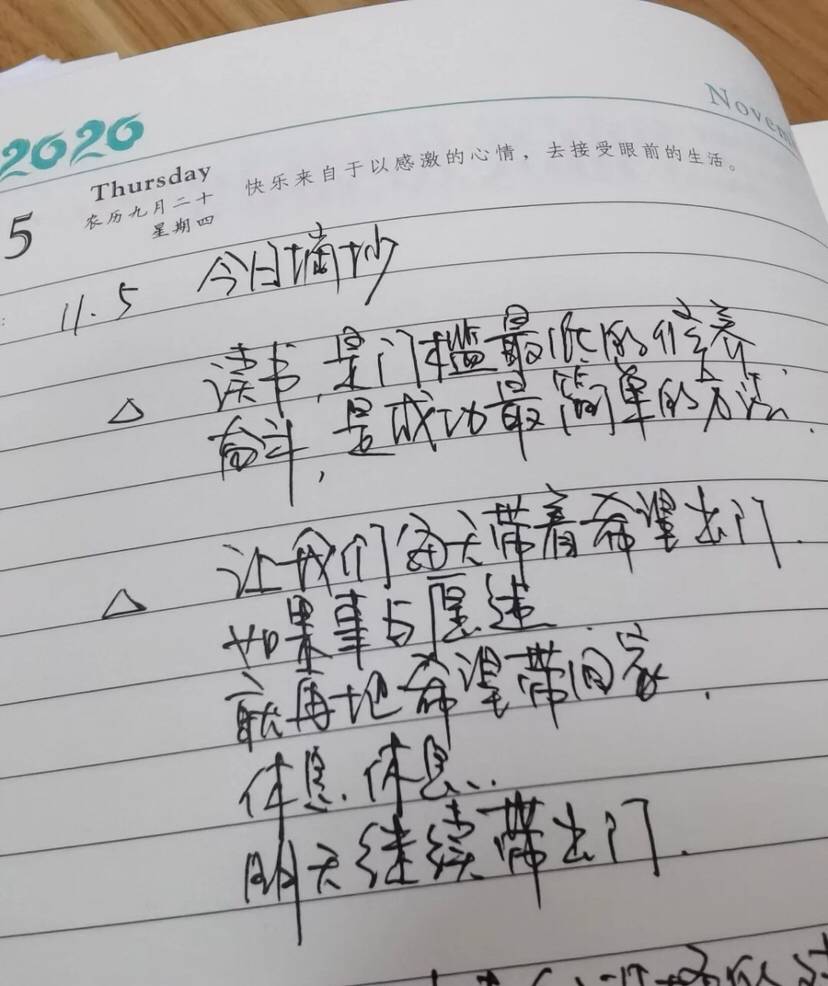 2020
Novem
5
Thursday
农历九月二十
星期四
快乐来自于以感激的心情，去接受眼前的生活。
11.5 今日摘抄
△ 读书,是门槛最低的修养.
奋斗,是成功最简单的方法.
△ 让我们每天带着希望出门.
如果事与愿违
就再把希望带回家.
休息.休息..
明天继续带出门.